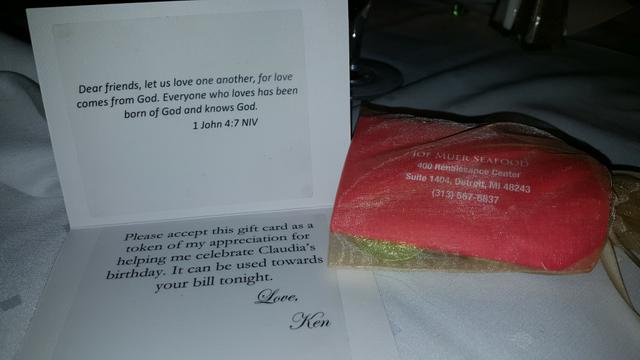 Dear friends, let us love one another, for love
comes from God. Everyone who loves has been
born of God and knows God.
1 John 4:7 NIV
Please accept this gift card as a
token of my appreciation for
helping me celebrate Claudia's
birthday. It can be used towards
your bill tonight.
Love,
Ken
JOE MUER SEAFOOD
400 Renaissance Center
Suite 1404, Detroit, MI 48243
(313) 567-6837